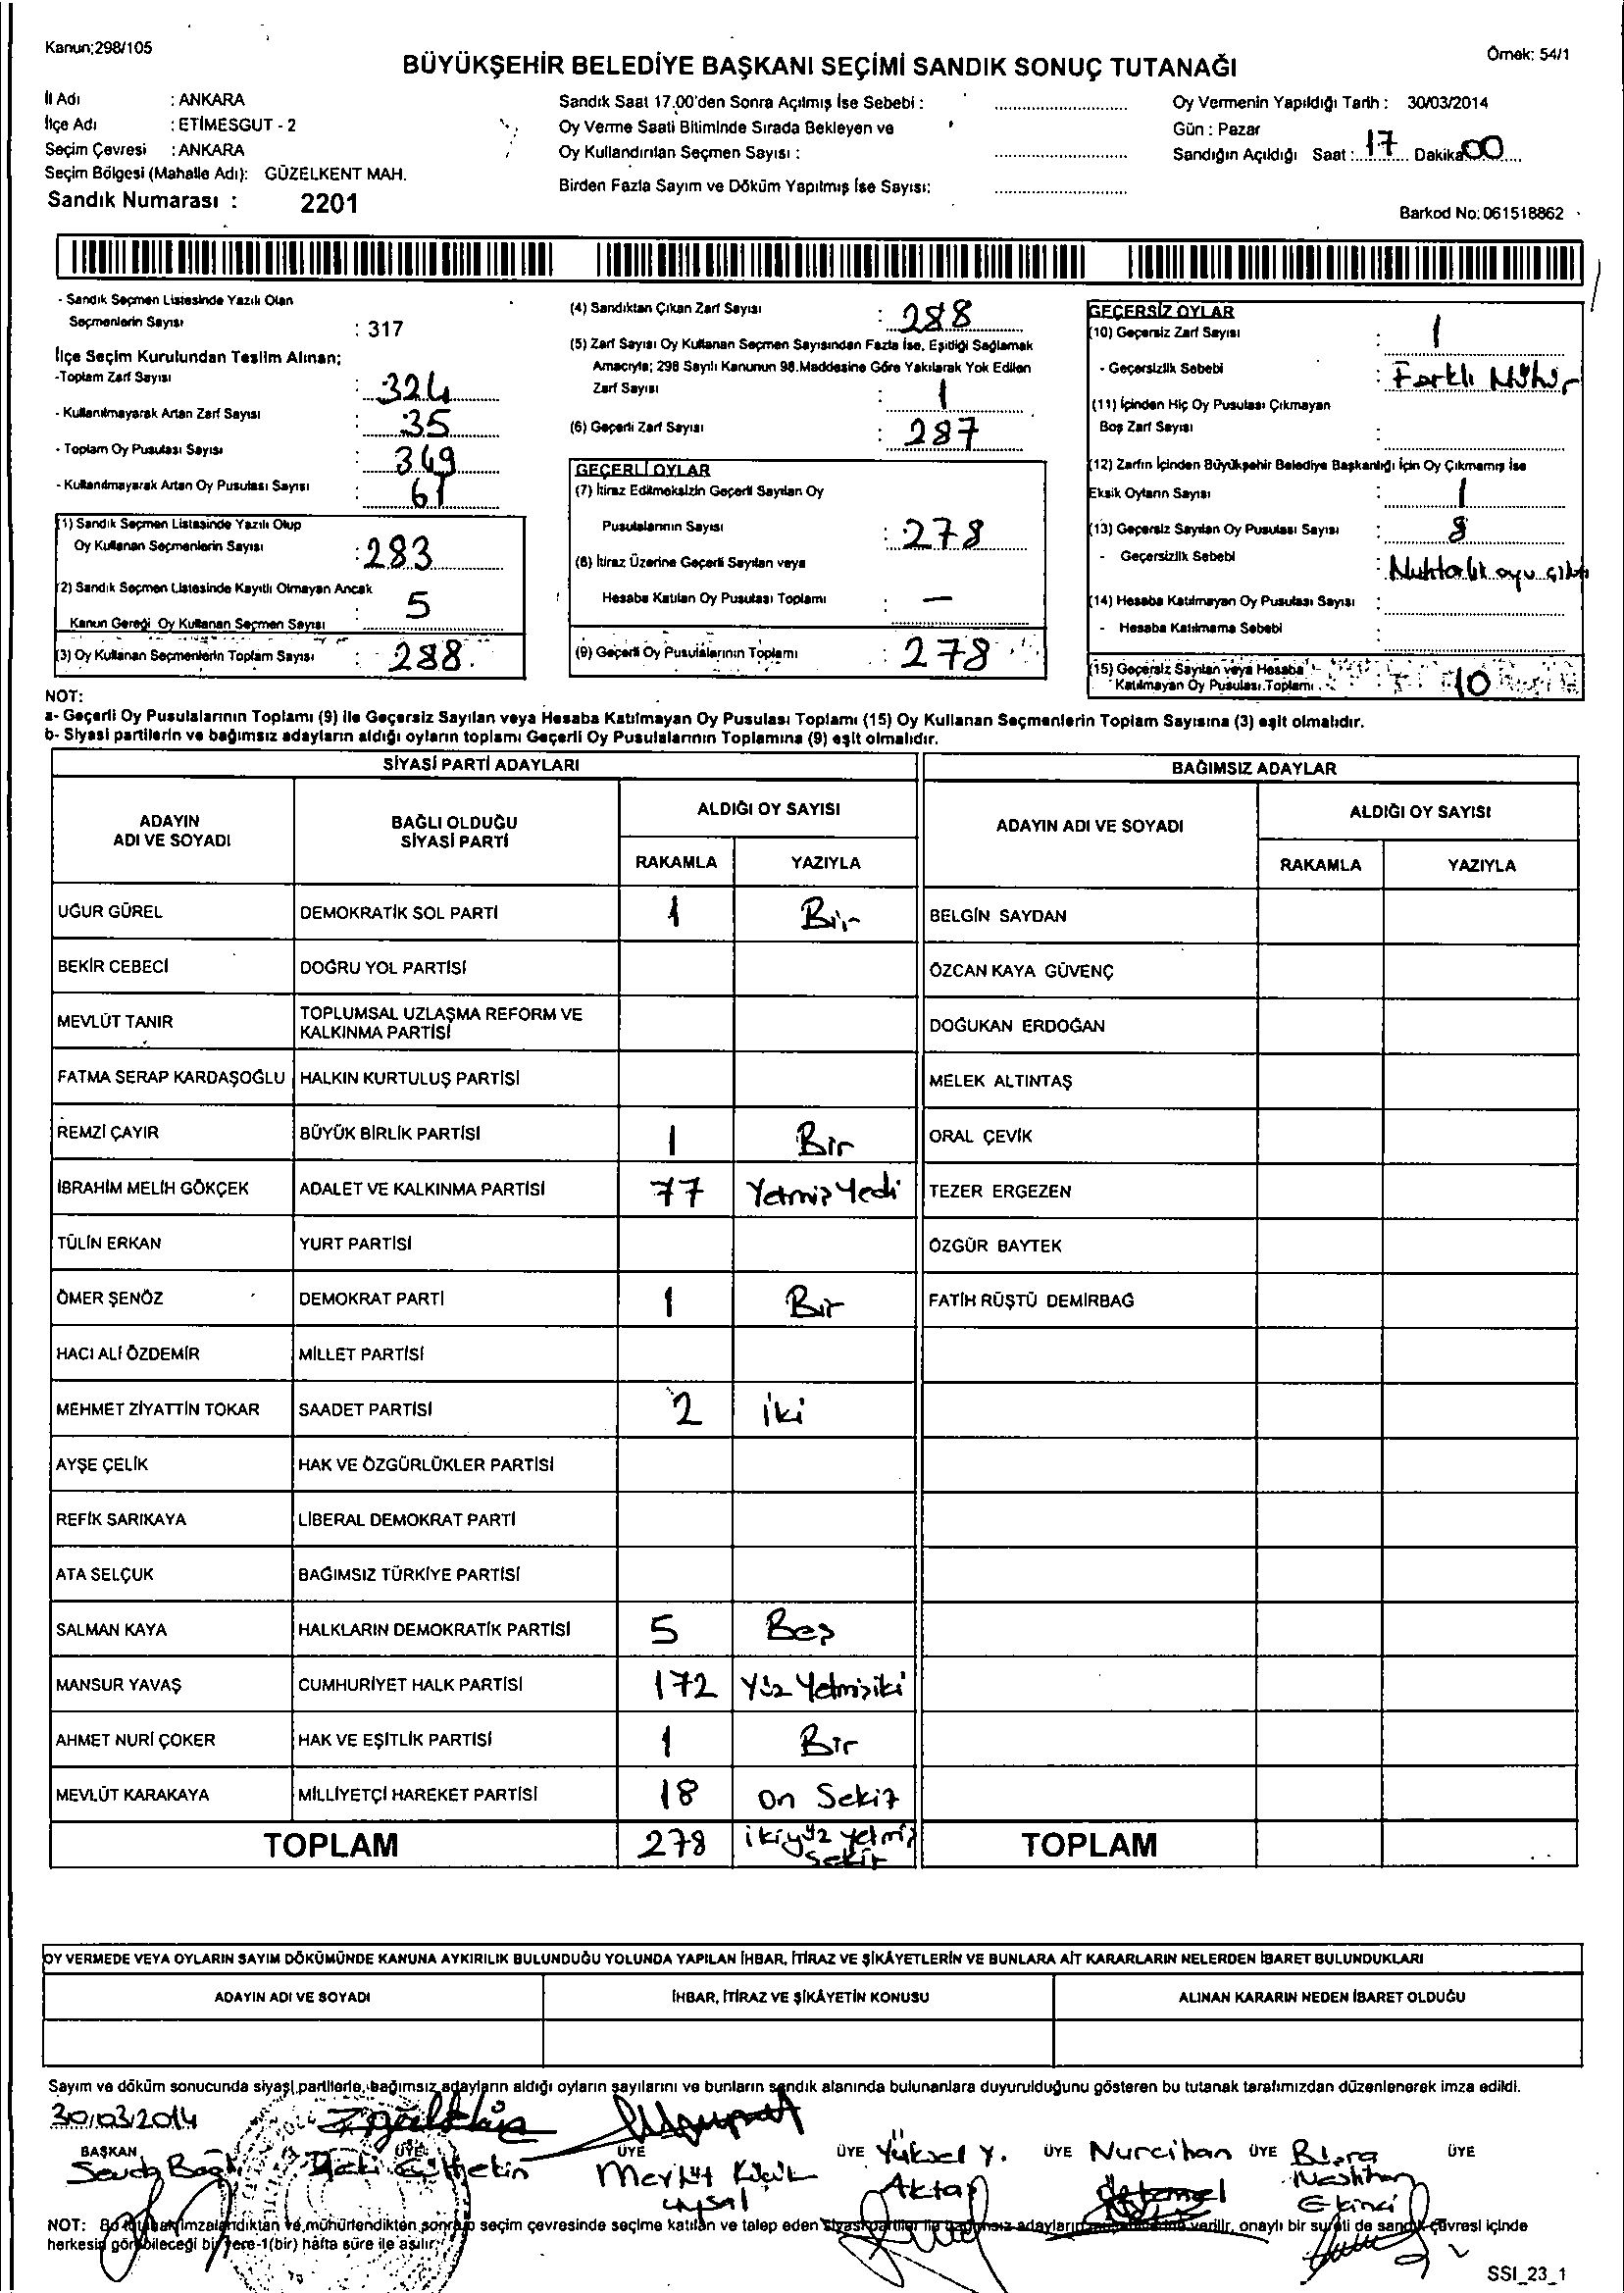 Kanun;298/105
Örnek: 54/1
BÜYÜKŞEHİR BELEDİYE BAŞKANI SEÇİMİ SANDIK SONUÇ TUTANAĞI
İl Adı : ANKARA
İlçe Adı : ETİMESGUT - 2
Seçim Çevresi : ANKARA
Seçim Bölgesi (Mahalle Adı): GÜZELKENT MAH.
Sandık Numarası : 2201
Sandık Saat 17.00'den Sonra Açılmış İse Sebebi :
Oy Verme Saati Bitiminde Sırada Bekleyen ve
Oy Kullandırılan Seçmen Sayısı :
Birden Fazla Sayım ve Döküm Yapılmış İse Sayısı:
Oy Vermenin Yapıldığı Tarih : 30/03/2014
Gün : Pazar
Sandığın Açıldığı Saat : 17 Dakika 00
Barkod No: 061518862
- Sandık Seçmen Listesinde Yazılı Olan
Seçmenlerin Sayısı : 317
İlçe Seçim Kurulundan Teslim Alınan;
-Toplam Zarf Sayısı : 324
- Kullanılmayarak Artan Zarf Sayısı : 35
- Toplam Oy Pusulası Sayısı : 349
- Kullanılmayarak Artan Oy Pusulası Sayısı : 61
(1) Sandık Seçmen Listesinde Yazılı Olup
Oy Kullanan Seçmenlerin Sayısı : 283
(2) Sandık Seçmen Listesinde Kayıtlı Olmayan Ancak
Kanun Gereği Oy Kullanan Seçmen Sayısı : 5
(3) Oy Kullanan Seçmenlerin Toplam Sayısı : 288
(4) Sandıktan Çıkan Zarf Sayısı : 288
(5) Zarf Sayısı Oy Kullanan Seçmen Sayısından Fazla İse, Eşitliği Sağlamak
Amacıyla; 298 Sayılı Kanunun 98.Maddesine Göre Yakılarak Yok Edilen
Zarf Sayısı : 1
(6) Geçerli Zarf Sayısı : 287
GEÇERLİ OYLAR
(7) İtiraz Edilmeksizin Geçerli Sayılan Oy
Pusulalarının Sayısı : 278
(8) İtiraz Üzerine Geçerli Sayılan veya
Hesaba Katılan Oy Pusulası Toplamı : —
(9) Geçerli Oy Pusulalarının Toplamı : 278
GEÇERSİZ OYLAR
(10) Geçersiz Zarf Sayısı : 1
- Geçersizlik Sebebi : Farklı Mühür
(11) İçinden Hiç Oy Pusulası Çıkmayan
Boş Zarf Sayısı :
(12) Zarfın İçinden Büyükşehir Belediye Başkanlığı İçin Oy Çıkmamış İse
Eksik Oyların Sayısı : 1
(13) Geçersiz Sayılan Oy Pusulası Sayısı : 8
- Geçersizlik Sebebi : Muhtarlık oyu çıktı
(14) Hesaba Katılmayan Oy Pusulası Sayısı :
- Hesaba Katılmama Sebebi :
(15) Geçersiz Sayılan veya Hesaba
Katılmayan Oy Pusulası Toplamı : 10
NOT:
a- Geçerli Oy Pusulalarının Toplamı (9) ile Geçersiz Sayılan veya Hesaba Katılmayan Oy Pusulası Toplamı (15) Oy Kullanan Seçmenlerin Toplam Sayısına (3) eşit olmalıdır.
b- Siyasi partilerin ve bağımsız adayların aldığı oyların toplamı Geçerli Oy Pusulalarının Toplamına (9) eşit olmalıdır.
SİYASİ PARTİ ADAYLARI
ADAYIN ADI VE SOYADI BAĞLI OLDUĞU SİYASİ PARTİ ALDIĞI OY SAYISI
RAKAMLA YAZIYLA
UĞUR GÜREL DEMOKRATİK SOL PARTİ 1 Bir
BEKİR CEBECİ DOĞRU YOL PARTİSİ
MEVLÜT TANIR TOPLUMSAL UZLAŞMA REFORM VE KALKINMA PARTİSİ
FATMA SERAP KARDAŞOĞLU HALKIN KURTULUŞ PARTİSİ
REMZİ ÇAYIR BÜYÜK BİRLİK PARTİSİ 1 Bir
İBRAHİM MELİH GÖKÇEK ADALET VE KALKINMA PARTİSİ 77 Yetmiş Yedi
TÜLİN ERKAN YURT PARTİSİ
ÖMER ŞENÖZ DEMOKRAT PARTİ 1 Bir
HACI ALİ ÖZDEMİR MİLLET PARTİSİ
MEHMET ZİYATTİN TOKAR SAADET PARTİSİ 2 iki
AYŞE ÇELİK HAK VE ÖZGÜRLÜKLER PARTİSİ
REFİK SARIKAYA LİBERAL DEMOKRAT PARTİ
ATA SELÇUK BAĞIMSIZ TÜRKİYE PARTİSİ
SALMAN KAYA HALKLARIN DEMOKRATİK PARTİSİ 5 Beş
MANSUR YAVAŞ CUMHURİYET HALK PARTİSİ 172 Yüz Yetmişiki
AHMET NURİ ÇOKER HAK VE EŞİTLİK PARTİSİ 1 Bir
MEVLÜT KARAKAYA MİLLİYETÇİ HAREKET PARTİSİ 18 on Sekiz
TOPLAM 278 ikiyüz yetmiş sekiz
BAĞIMSIZ ADAYLAR
ADAYIN ADI VE SOYADI ALDIĞI OY SAYISI
RAKAMLA YAZIYLA
BELGİN SAYDAN
ÖZCAN KAYA GÜVENÇ
DOĞUKAN ERDOĞAN
MELEK ALTINTAŞ
ORAL ÇEVİK
TEZER ERGEZEN
ÖZGÜR BAYTEK
FATİH RÜŞTÜ DEMİRBAĞ
TOPLAM
OY VERMEDE VEYA OYLARIN SAYIM DÖKÜMÜNDE KANUNA AYKIRILIK BULUNDUĞU YOLUNDA YAPILAN İHBAR, İTİRAZ VE ŞİKÂYETLERİN VE BUNLARA AİT KARARLARIN NELERDEN İBARET BULUNDUKLARI
ADAYIN ADI VE SOYADI İHBAR, İTİRAZ VE ŞİKÂYETİN KONUSU ALINAN KARARIN NEDEN İBARET OLDUĞU
Sayım ve döküm sonucunda siyasi partilerle, bağımsız adayların aldığı oyların sayılarını ve bunların sandık alanında bulunanlara duyurulduğunu gösteren bu tutanak tarafımızdan düzenlenerek imza edildi.
30/03/2014
BAŞKAN ÜYE ÜYE ÜYE Yüksel Y. ÜYE Nurcihan ÜYE Büşra ÜYE
Aktaş Neslihan
Ekinci
NOT: Bu tutanak imzalandıktan ve mühürlendikten sonra seçim çevresinde seçime katılan ve talep eden siyasi partiler ile bağımsız adayların verilir, onaylı bir sureti de sandık çevresi içinde
herkesin görebileceği bir yere-1(bir) hafta süre ile asılır.
SSI_23_1